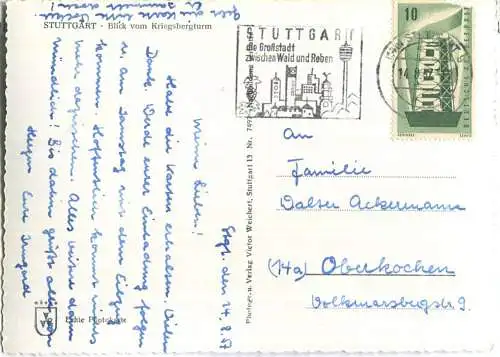 STUTTGART - Blick vom Kriegsbergturm
STUTTGART
die Großstadt
zwischen Wald und Reben
10
DEUTSCHE
Stgt. den 14.8.57
Meine Lieben!
Habe die Karten erhalten. Vielen
Dank. Werde eurer Einladung folgen
u. am Samstag mit dem Eilzug
kommen. Hoffentlich kommt nichts
mehr dazwischen. Alles weitere dann
mündlich! Bis dahin grüßt alle von
Herzen Eure Irmgard
Echte Photokarte
Photogr. u. Verlag Victor Weichert, Stuttgart 13 Nr. 7497
An
Familie
Walter Ackermann
(14a) Oberkochen
Volkmarsbergstr. 9.